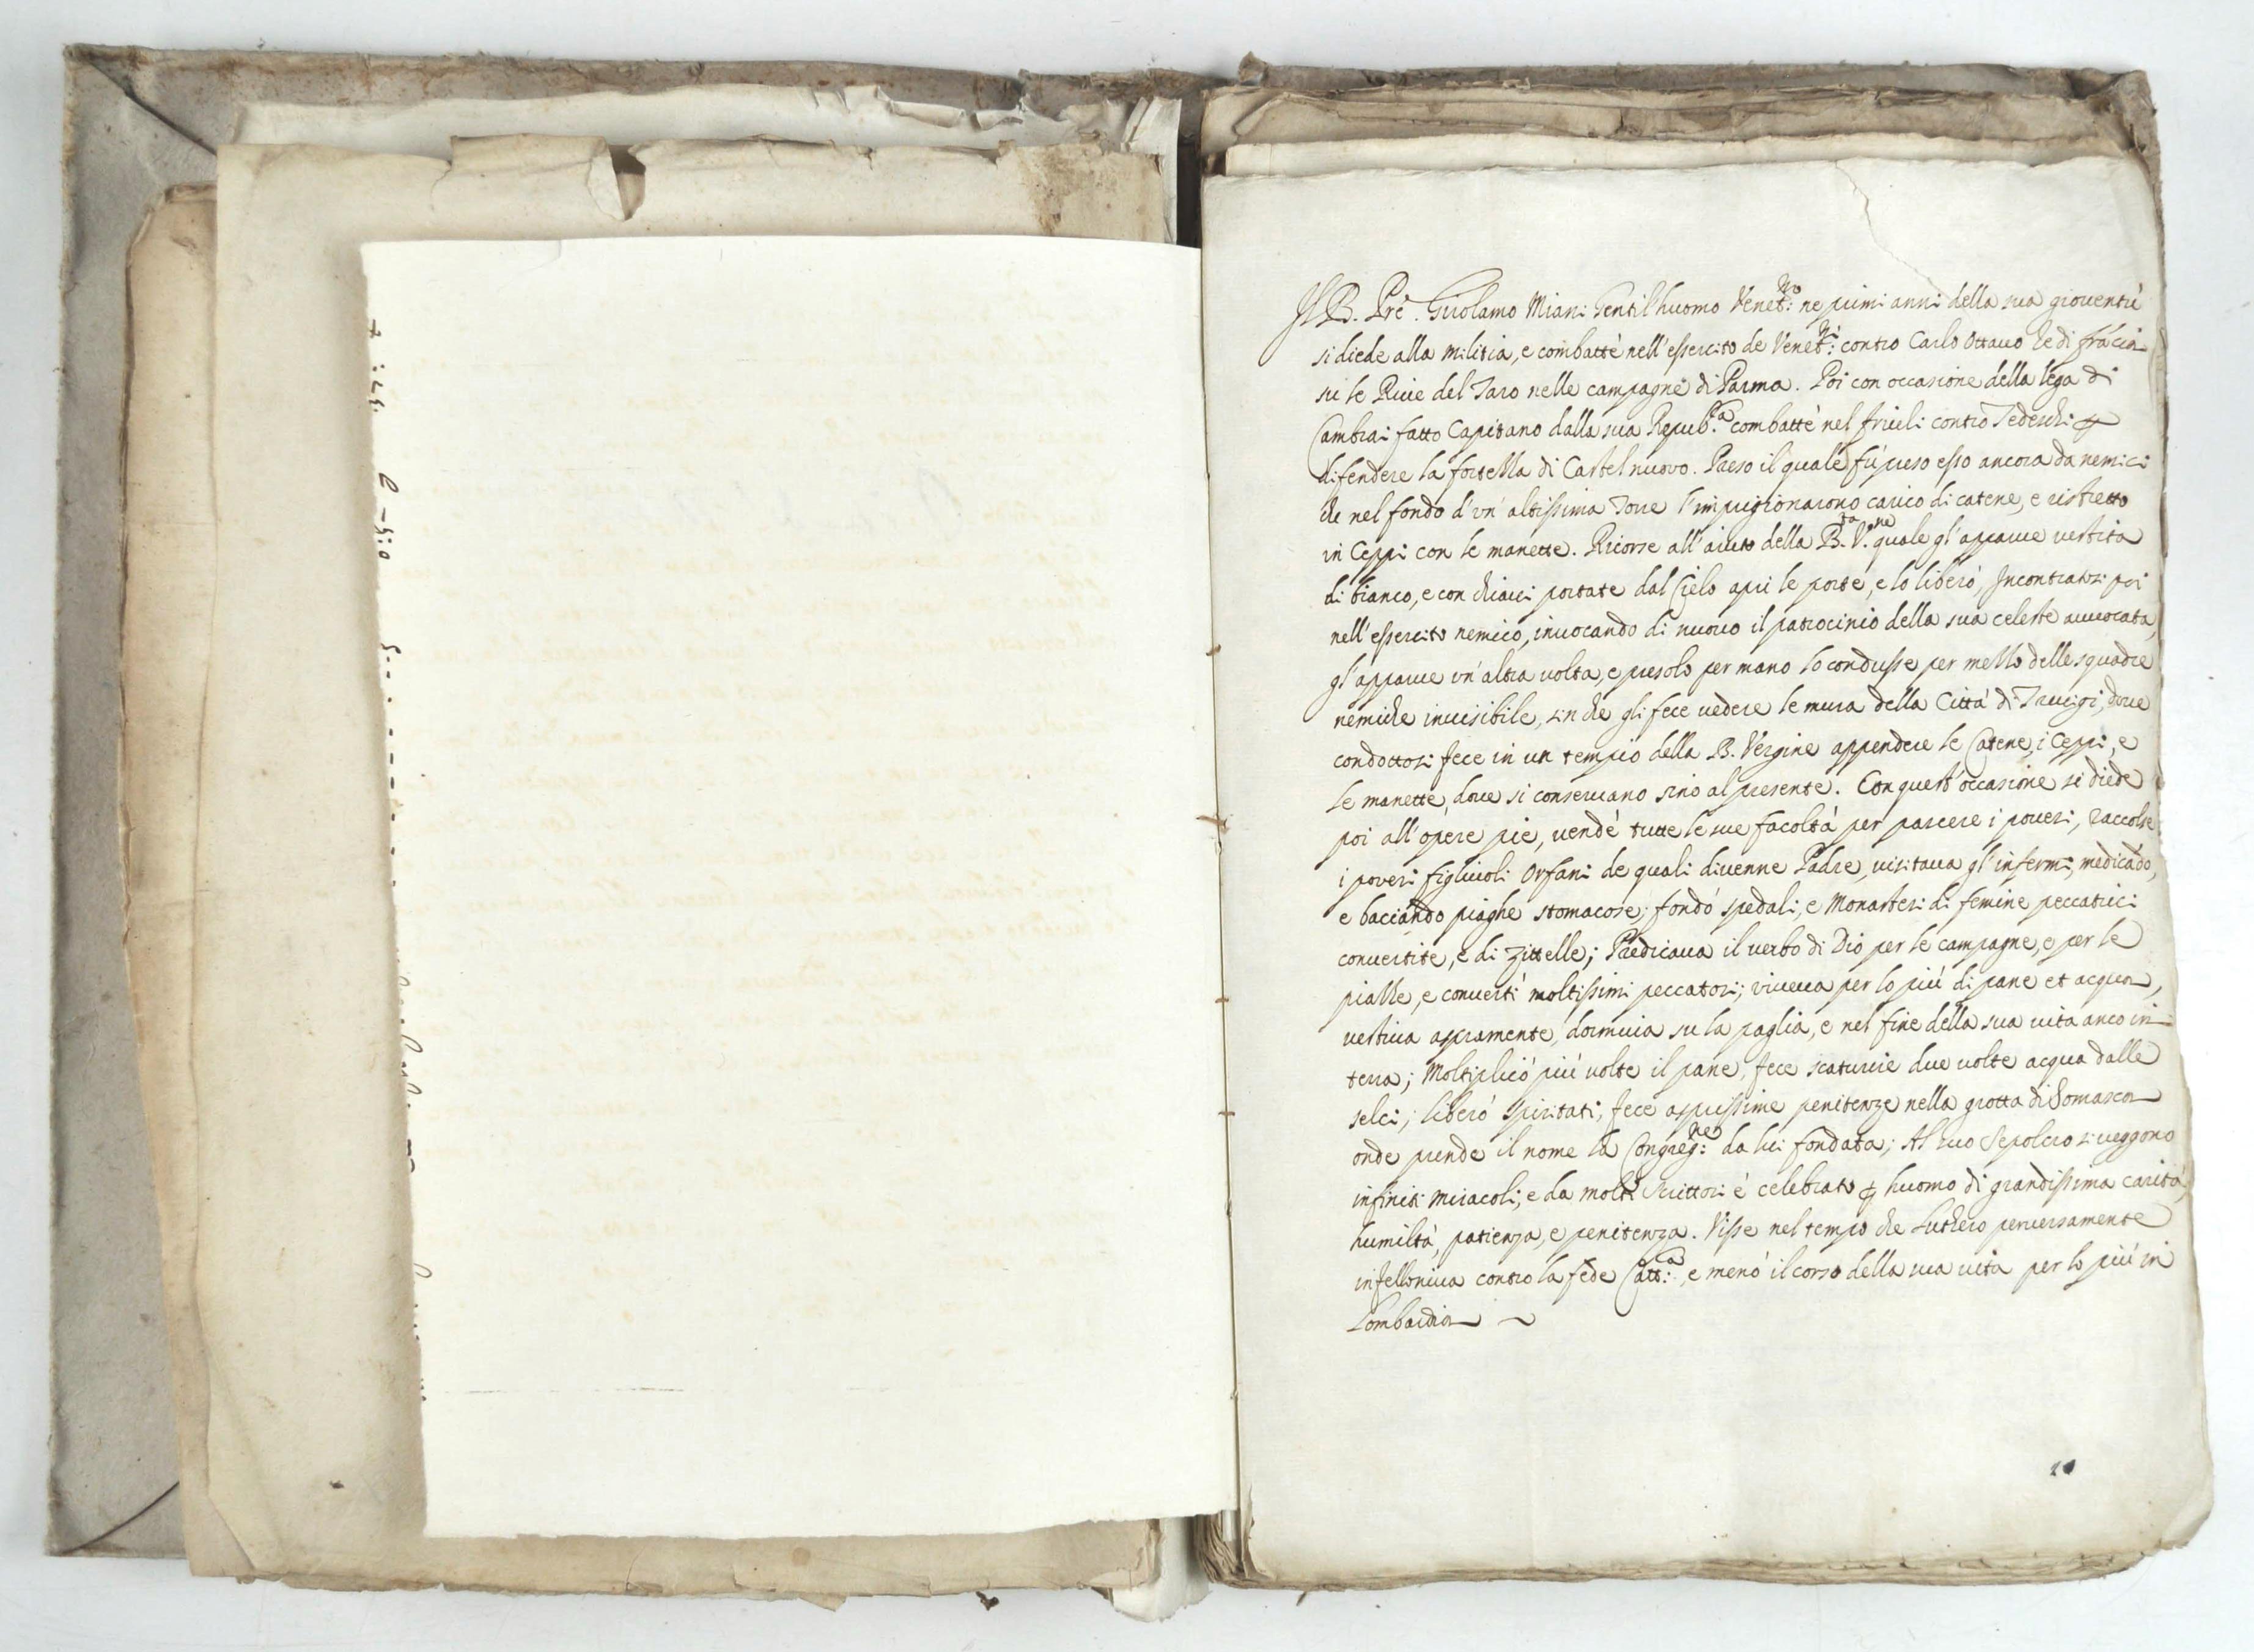 Il B. Prẽ. Girolamo Miani Gentil'huomo Venet:no ne primi anni della sua gioventù
si diede alla militia, e combattè nell'essercito de Venet:ni contro Carlo Ottavo Re di frãcia
su le Rive del Taro nelle campagne di Parma. Poi con occasione della lega di
Cambrai fatto Capitano dalla sua Repub.ca combattè nel friuli contro Tedeschi ꝑ
difendere la fortezza di Castel nuovo. Preso il quale fù preso esso ancora da nemici
che nel fondo d'vn'altissima Torre l'imprigionarono carico di catene, e ristretto
in Ceppi con le manette. Ricorse all'aiuto della B.ta V.ne quale gl'apparve vestita
di bianco, e con chiavi portate dal Cielo aprì le porte, e lo liberò, Incontratosi poi
nell'essercito nemico, invocando di nuovo il patrocinio della sua celeste avvocata,
gl'apparve vn'altra volta, e presolo per mano lo condusse per mezzo delle squadre
nemiche invisibile, sin che gli fece vedere le mura della Città di Trevigi, dove
condottosi fece in un tempio della B. Vergine appendere le Catene, i Ceppi, e
le manette, dove si conservano sino al presente. Con quest'occasione si diede
poi all'opere pie, vendè tutte le sue facoltà per pascere i poveri, raccolse
i poveri figliuoli Orfani de quali divenne Padre, visitava gl'infermi, medicãdo,
e baciando piaghe stomacose; fondò spedali, e Monasteri di femine peccatrici
convertite, e di zittelle; Predicava il verbo di Dio per le campagne, e per le
piazze, e convertì moltissimi peccatori; viveva per lo più di pane et acqua,
vestiva aspramente, dormiva su la paglia, e nel fine della sua vita anco in
terra; Moltiplicò più volte il pane, fece scaturire due volte acqua dalle
selci, liberò spiritati, fece asprissime penitenze nella grotta di Somasca
onde prende il nome la Congreg:ne da lui fondata; Al suo Sepolcro si veggono
infiniti miracoli, e da molti Scrittori è celebrato ꝑ huomo di grandissima carità,
humiltà, patienza, e penitenza. Visse nel tempo che Luthero perversamente
infelloniva contro la fede Catt:ca, e menò il corso della sua vita per lo più in
Lombardia